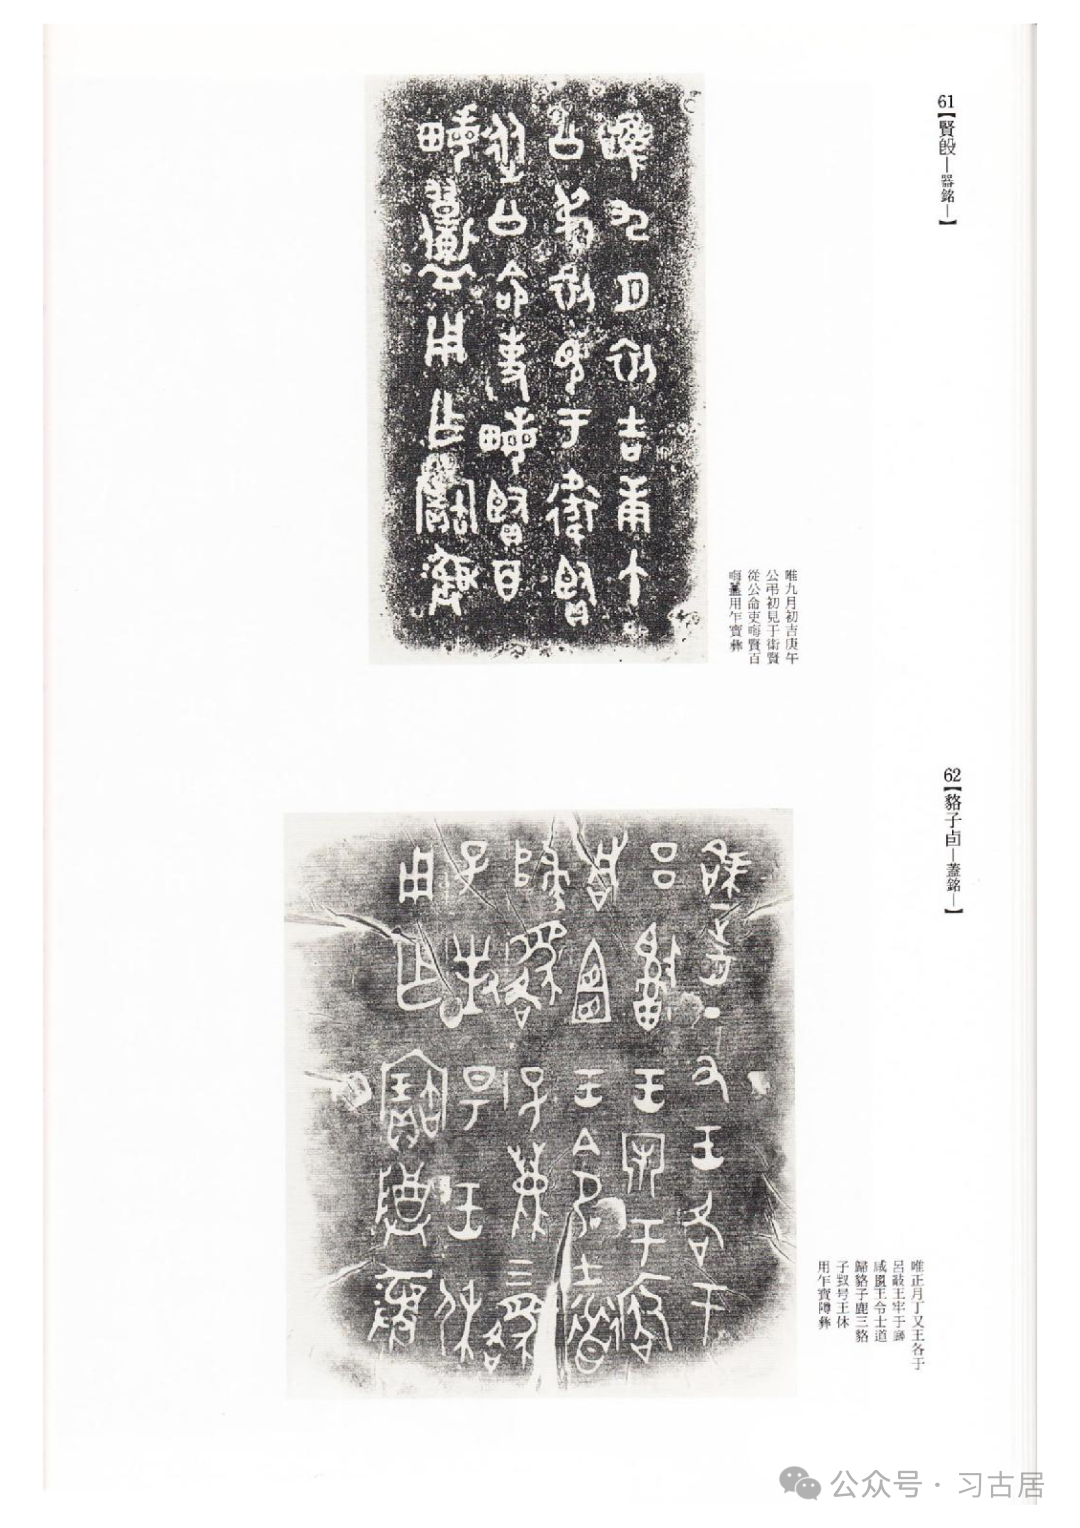 61【賢𣪘—器銘—】
唯九月初吉庚午
公弔初見于衛賢
從公命吏晦賢百
晦用乍寶彝
62【貉子卣—蓋銘—】
唯正月丁又王各于
呂王牢于
咸王令士道
歸貉子鹿三貉
子對号王休
用乍寶障彝
公众号·习古居